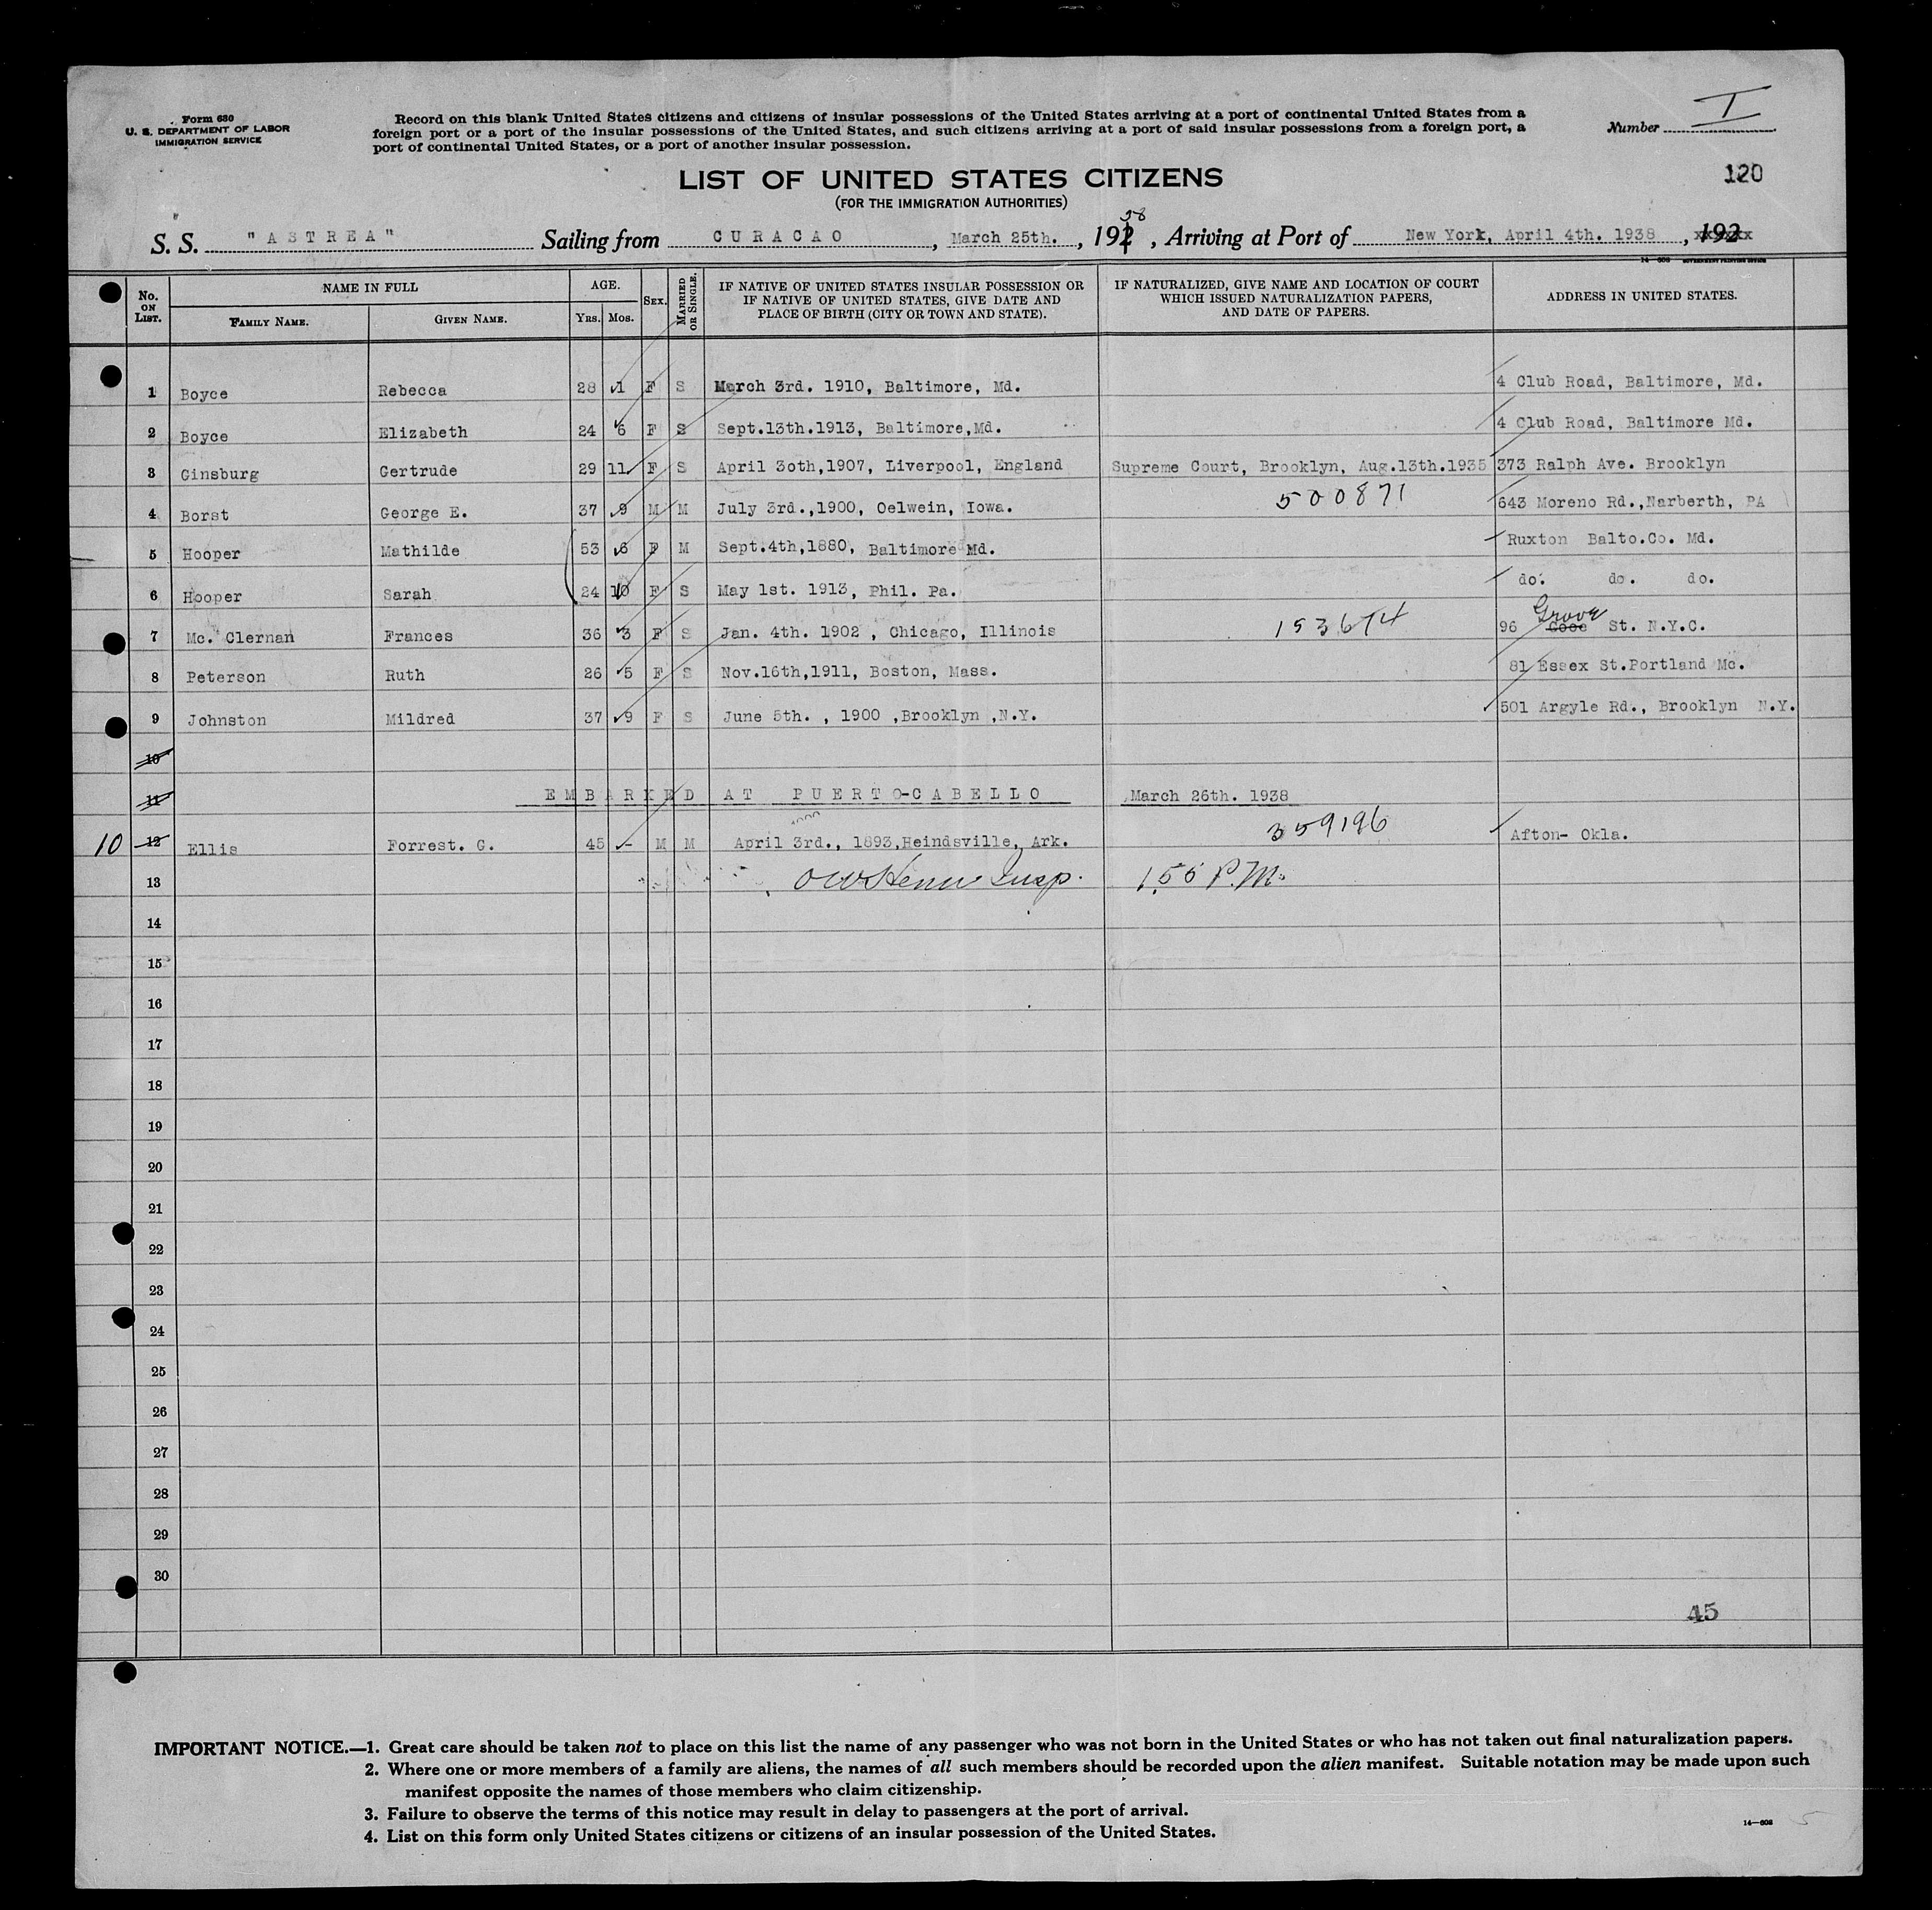 Form 630
U. S. DEPARTMENT OF LABOR
IMMIGRATION SERVICE
Record on this blank United States citizens and citizens of insular possessions of the United States arriving at a port of continental United States from a
foreign port or a port of the insular possessions of the United States, and such citizens arriving at a port of said insular possessions from a foreign port, a
port of continental United States, or a port of another insular possession.
Number I
120
LIST OF UNITED STATES CITIZENS
(FOR THE IMMIGRATION AUTHORITIES)
S. S. "ASTREA" Sailing from CURACAO, March 25th., 192 38, Arriving at Port of New York, April 4th. 1938, 192
No. ON LIST. NAME IN FULL AGE. SEX. MARRIED OR SINGLE. IF NATIVE OF UNITED STATES INSULAR POSSESSION OR IF NATIVE OF UNITED STATES, GIVE DATE AND PLACE OF BIRTH (CITY OR TOWN AND STATE). IF NATURALIZED, GIVE NAME AND LOCATION OF COURT WHICH ISSUED NATURALIZATION PAPERS, AND DATE OF PAPERS. ADDRESS IN UNITED STATES.
FAMILY NAME. GIVEN NAME. YRS. MOS.
1 Boyce Rebecca 28 1 F S March 3rd. 1910, Baltimore, Md. 4 Club Road, Baltimore, Md.
2 Boyce Elizabeth 24 6 F S Sept.13th.1913, Baltimore,Md. 4 Club Road, Baltimore Md.
3 Ginsburg Gertrude 29 11 F S April 3oth,1907, Liverpool, England Supreme Court, Brooklyn, Aug.13th.1935 373 Ralph Ave. Brooklyn
4 Borst George E. 37 9 M M July 3rd.,1900, Oelwein, Iowa. 500871 643 Moreno Rd.,Narberth, PA
5 Hooper Mathilde 53 6 F M Sept.4th,1880, Baltimore Md. Ruxton Balto.Co. Md.
6 Hooper Sarah 24 10 F S May 1st. 1913, Phil. Pa. do. do. do.
7 Mc. Clernan Frances 36 3 F S Jan. 4th. 1902 , Chicago, Illinois 153674 96 Grove St. N.Y.C.
8 Peterson Ruth 26 5 F S Nov.16th,1911, Boston, Mass. 81 Essex St.Portland Me.
9 Johnston Mildred 37 9 F S June 5th. , 1900 ,Brooklyn ,N.Y. 501 Argyle Rd., Brooklyn N.Y.
10
11 EMBARKED AT PUERTO-CABELLO March 26th. 1938
10 12 Ellis Forrest. G. 45 - M M April 3rd., 1893,Heindsville, Ark. 359196 Afton- Okla.
13 Insp. 1.55 P.M.
14
15
16
17
18
19
20
21
22
23
24
25
26
27
28
29
30
45
IMPORTANT NOTICE.—1. Great care should be taken not to place on this list the name of any passenger who was not born in the United States or who has not taken out final naturalization papers.
2. Where one or more members of a family are aliens, the names of all such members should be recorded upon the alien manifest. Suitable notation may be made upon such
manifest opposite the names of those members who claim citizenship.
3. Failure to observe the terms of this notice may result in delay to passengers at the port of arrival.
4. List on this form only United States citizens or citizens of an insular possession of the United States.
14—608